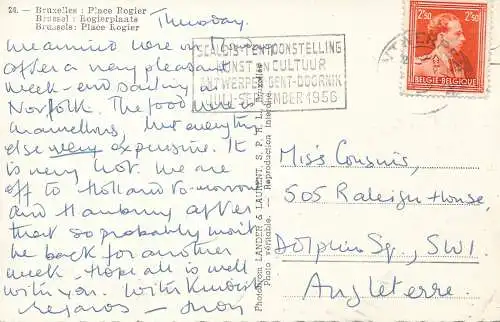 24. — Bruxelles : Place Rogier
Brussel : Rogierplaats
Brussels: Place Rogier
Thursday.
We arrived here on
after a very pleasant
week-end sailing in
Norfolk. The food here is
marvellous, but everything
else very expensive. It
is very hot. We are
off to Holland to-morrow
and Hamburg after
that so probably won't
be back for another
week. Hope all is well
with you. With kindest
regards —
SCALDIS-TENTOONSTELLING
KUNST EN CULTUUR
ANTWERPEN-GENT-DOORNIK
JULI-SEPTEMBER 1956
2F50 2F50
BELGIE-BELGIQUE
Photocrom LANDER & LAURENT, S. P. R. L., Bruxelles
Photo véritable. — Reproduction interdite.
Miss Cousins,
505 Raleigh House,
Dolphin Sq., SW1.
Angleterre.